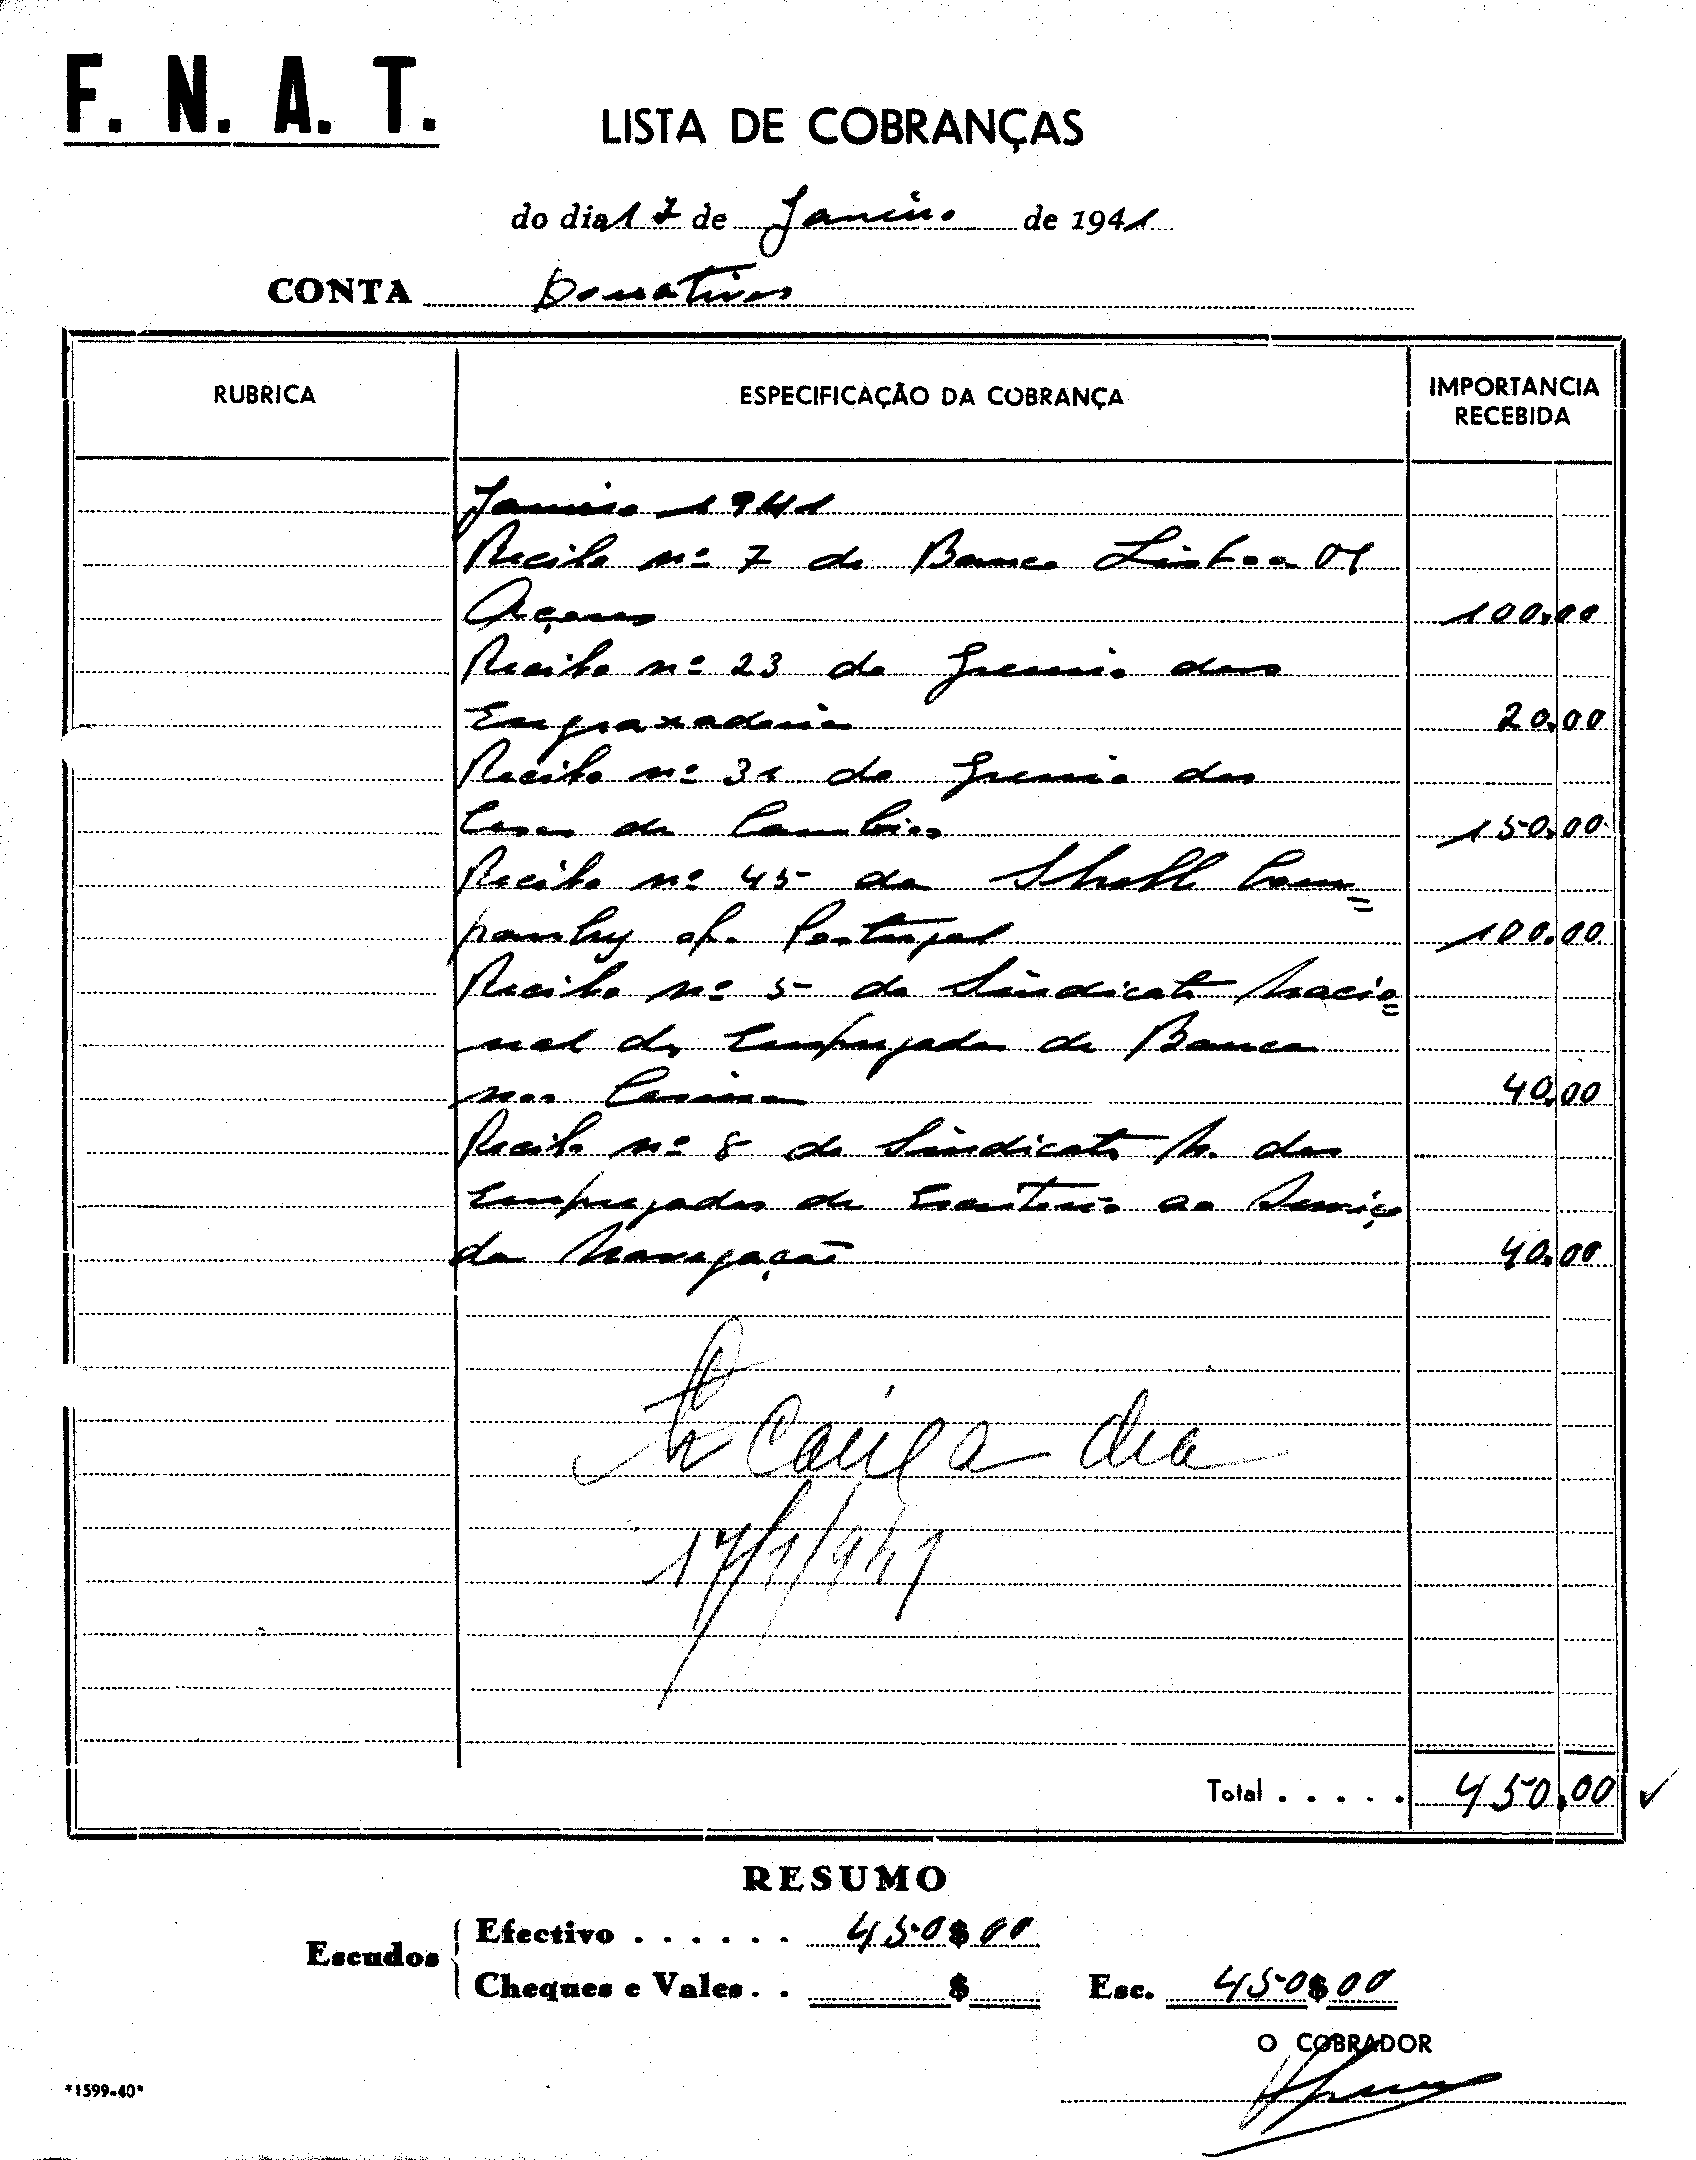 F. N. A. T.
LISTA DE COBRANÇAS
do dia 17 de Janeiro de 1941
CONTA Donativos
RUBRICA ESPECIFICAÇÃO DA COBRANÇA IMPORTANCIA RECEBIDA
Janeiro 1941
Recibo nº 7 do Banco Lisboa &
Açores 100.00
Recibo nº 23 do Gremio dos
20.00
Recibo nº 31 do Gremio das
Casas de Cambios 150.00
Recibo nº 45 da Shell Com=
panhy of. Portugal 100.00
Recibo nº 5 do Sindicato Nacio=
nal dos Empregados de Banca
nos Casinos 40.00
Recibo nº 8 do Sindicato N. dos
Empregados de Escritorio ao Serviço
da Navegação 40.00
Caixa dia
17/1/941
Total . . . . . 450.00
RESUMO
Escudos
Efectivo . . . . . . 450$00
Cheques e Vales . . $
Esc. 450$00
O COBRADOR
*1599-40*